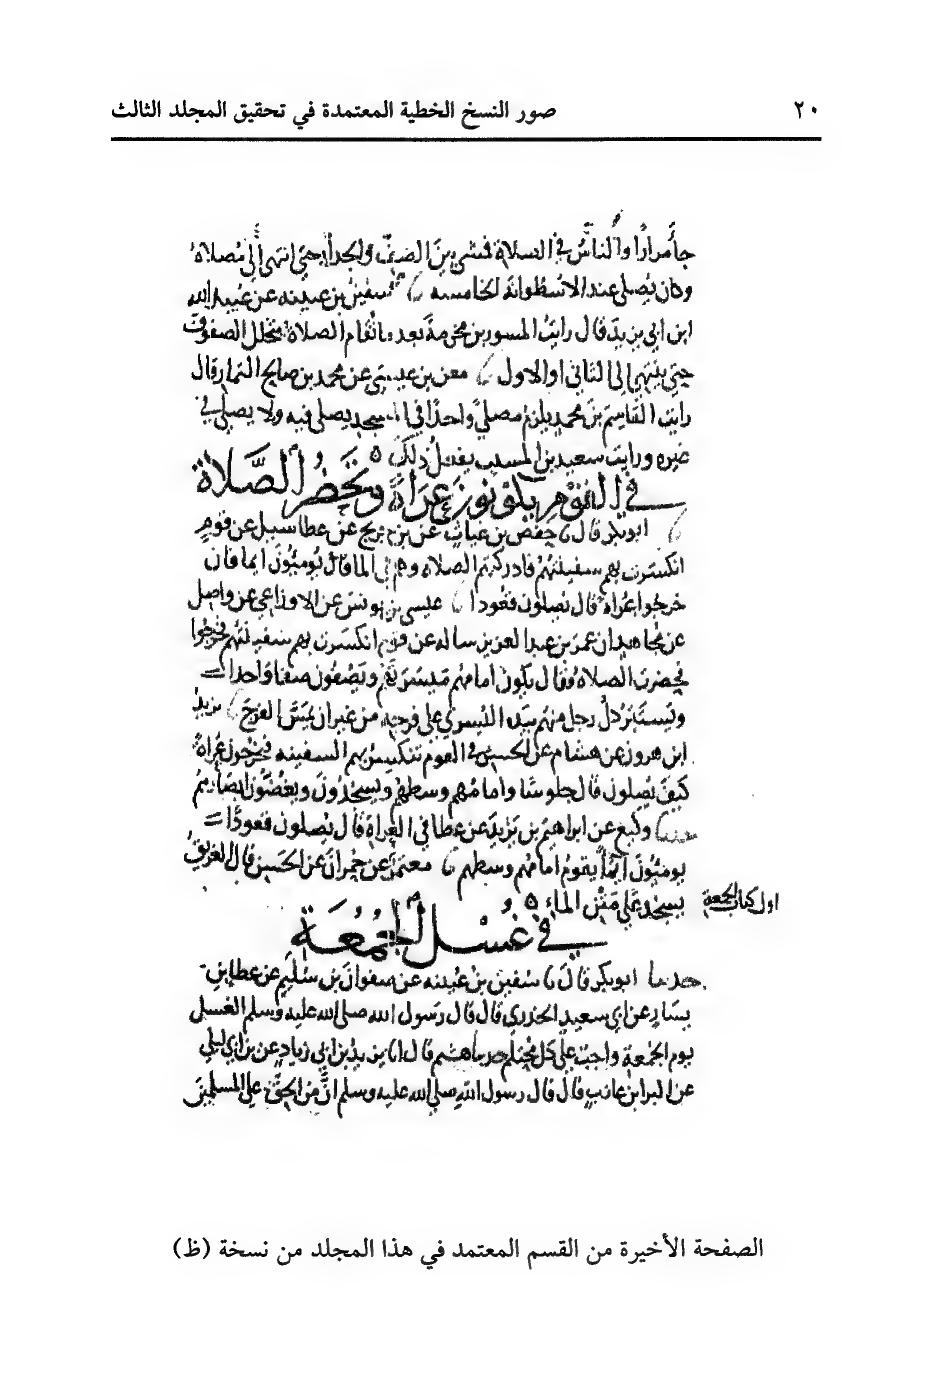 ٢٠ صور النسخ الخطية المعتمدة في تحقيق المجلد الثالث
جا مرارا والناس في الصلاة فمشى بين الصف والجدار حتى انتهى إلى مصلاه
وكان يصلي عند الاسطوانة الخامسة سفين بن عيينه عن عبيد الله
ابن ابي يزيد قال رايت المسور بن مخرمة بعد ما تقام الصلاة يتخلل الصفوف
حتى ينتهي إلى الثاني او الاول معن بن عيسى عن محمد بن صالح التمار قال
رايت القاسم بن محمد يلزم مصلى واحدا في المسجد يصلي فيه ولا يصلي في
غيره ورايت سعيد بن المسيب يفعل ذلك
في القوم يكونون عراة وتحضر الصلاة
ابو بكر قال حفص بن غياث عن بن جريج عن عطا سيل عن قوم
انكسرت بهم سفينتهم فادركتهم الصلاه وهم في الما قال يوميون ايما فان
خرجوا عراة قال يصلون قعودا عيسى بن يونس عن الاوزاعي عن واصل
عن مجاهد ان عمر بن عبد العزيز ساله عن قوم انكسرت بهم سفينتهم فخرجوا
فحضرت الصلاة فقال يكون امامهم ميسرتهم ويصفون صفا واحدا
ويستتر كل رجل منهم بيده اليسرى على فرجه من غير ان يمس الفرج يزيد
ابن هرون عن هشام عن الحسن في القوم تنكسر بهم السفينه فيخرجون عراة
كيف يصلون قال جلوسا وامامهم وسطهم ويسجدون ويغضون ابصارهم
وكيع عن ابراهيم بن يزيد عن عطا في العراة قال يصلون قعودا
يوميون ايما يقوم امامهم وسطهم معتمر عن حمران عن الحسن قال الغريق
يسجد على متن الماء
اول كتاب الجمعة
في غسل الجمعة
حدثنا ابو بكر قال سفين بن عيينه عن صفوان بن سليم عن عطا بن
يسار عن ابي سعيد الخدري قال قال رسول الله صلى الله عليه وسلم الغسل
يوم الجمعة واجب على كل محتلم حدثنا هشيم قال انا يزيد بن ابي زياد عن بن ابي ليلى
عن البرا بن عازب قال قال رسول الله صلى الله عليه وسلم ان من الحق على المسلمين
الصفحة الأخيرة من القسم المعتمد في هذا المجلد من نسخة (ظ)